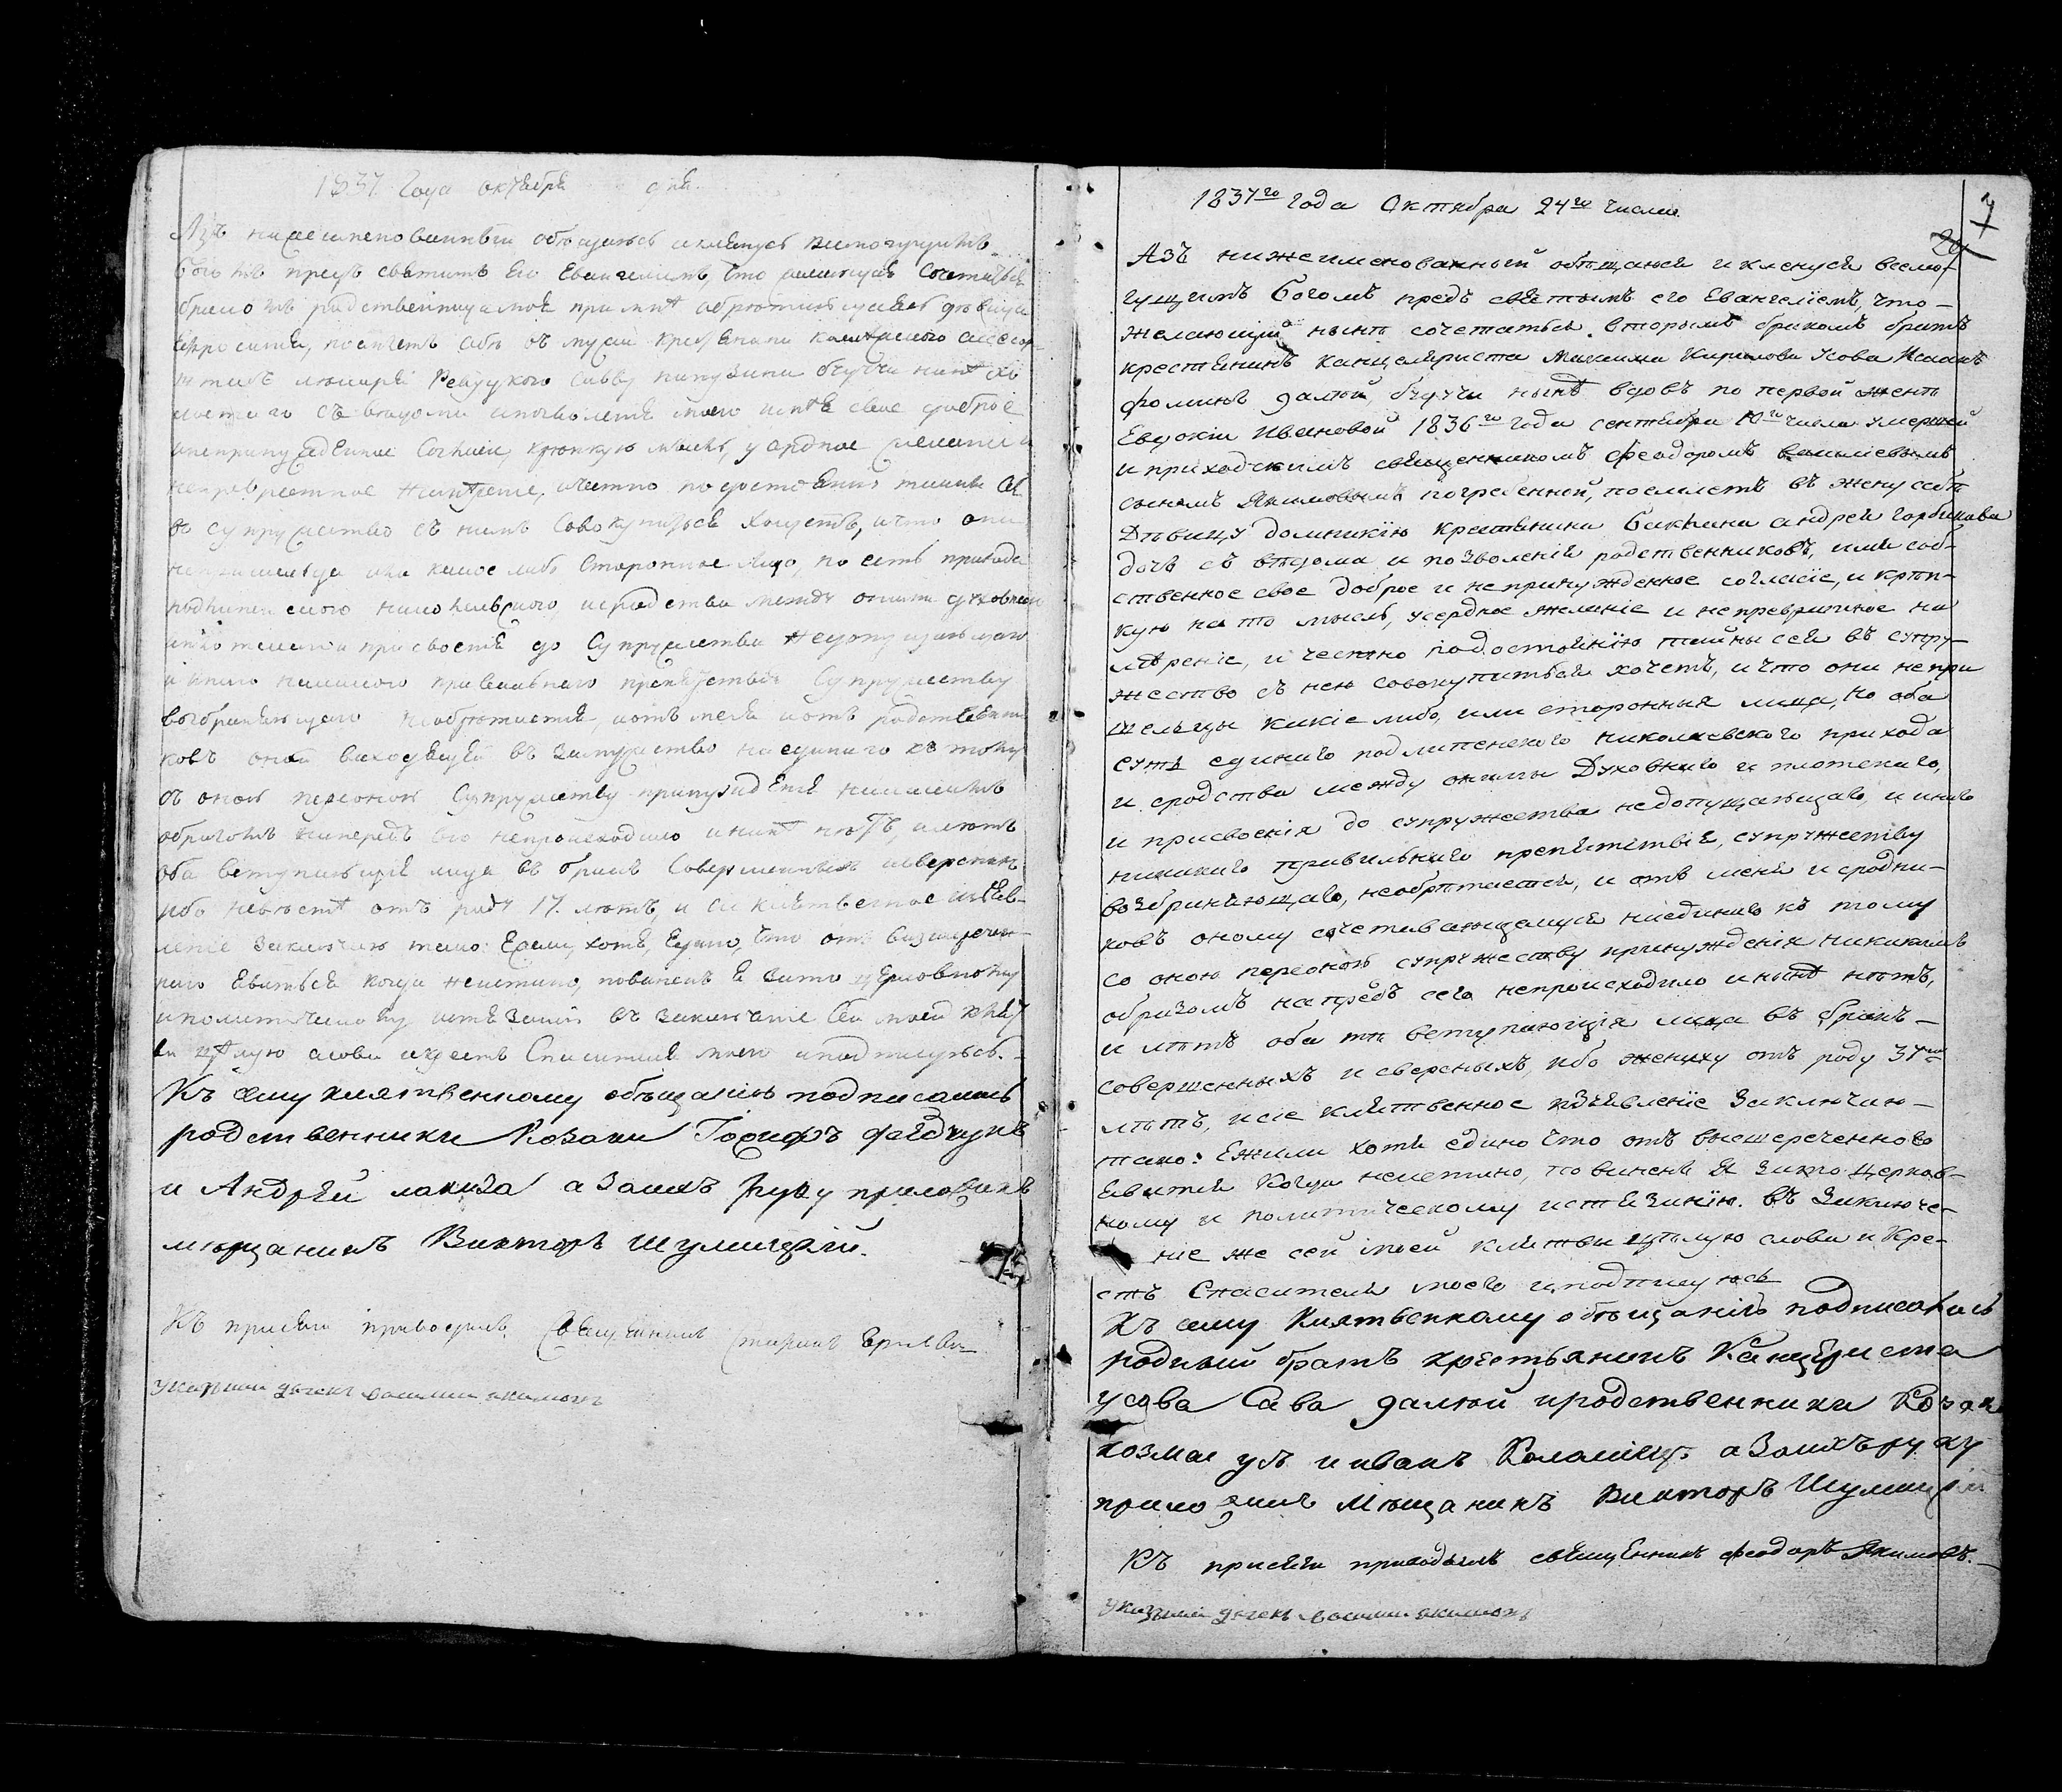 1837 года октября дня
Азъ нижеименованный обещаюсь и кленусь всемогущимъ
Богомъ предъ святымъ Его Евангелиемъ, что желающая сочетаться
бракомъ родственница моя при мне обретающаяся девица
поемлетъ себе въ мужа крестянина
Савву будучи ныне хо
лостого съ ведома и позволения моего имея свое доброе
и непринужденное согласие, крепкую мысль, усердное желание и
непревратное намерение, и честно по достоянию тайны сей
въ супружество съ нимъ совокупиться хощетъ, и что они
непришельцы или какое либо стороннее лицо, но суть прихода
подлипенского николаевского, и сродства между оными духовного
и плотского и присвоения до супружества недопущающаго
и иного никакого правильнаго препятствия супружеству
возбраняющаго необретается, и отъ меня и отъ родственни
ковъ оной выходящей въ замужство наединаго къ тому
съ оною персоною супружеству принуждения никакимъ
образомъ напередъ сего непроисходило и ныне нетъ, и летъ
оба вступающия лица въ бракъ совершенныхъ и сверсныхъ
ибо невеста отъ роду 17. летъ, и сие клятвенное изъяв-
ление заключаю тако: Ежели хотя едино, что отъ вышеречен-
наго явиться когда неистино, повиненъ я зато церковному
и политическому истязанию въ заключение сей моей кля
твы целую слова и крестъ Спасителя моего и подписуюсь.
Къ сему клятвенному обещанию подписались
родственники Козаки Іосифъ Файдунъ
и Андрей лакиза а Заихъ руку приложилъ
мещанинъ Викторъ Шулицкий.
Къ присяги приводилъ священникъ
указный дячекъ василий якимовъ
7
20
1837го года Октября 24го числа
Азъ нижеименованный обещаюся и кленуся всемо-
гущимъ Богомъ предъ святымъ его Евангелиемъ, что-
желающий ныне сочетаться вторымъ бракомъ братъ
крестянинъ канцеляриста Максима Кирилова Усова Исаакъ
Фоминъ далюй, будучи ныне вдовъ по первой жене
Евдокии Ивановой 1836го года сентября 10го числа умершей
и приходскимъ священникомъ Феодоромъ васильевымъ
сыномъ Якимовымъ погребенной, поемлетъ въ жену себе
Девицу домникию крестянина Баклана андрея горбикова
дочь съ ведома и позволения родственниковъ, имея соб-
ственное свое доброе и непринужденное согласие, и креп-
кую на то мысль, усердное желание и непревратное на
мерение, и честно по достоянию тайны сея въ супру-
жество съ нею совокупиться хочетъ, и что они непри
шельцы какие либо, или стороння лица, но оба
суть единаго подлипенского николаевского прихода
и сродства между оными Духовнаго и плотскаго,
и присвоения до супружества недопущающаго, и инаго
никакого правильнаго препятствия, супружеству
возбраняющаго, необретается, и отъ меня и сродни-
ковъ оному сочетавающемуся наединаго къ тому
со оною персоною супружеству принуждения никакимъ
образомъ напредъ сего непроисходило и ныне нетъ,
и летъ оба те вступающия лица въ бракъ-
совершенныхъ и сверсныхъ, ибо жениху отъ роду 37
летъ, и сие клятвенное изъявление заключаю-
тако: Ежели хотя едино что отъ вышереченнаго
явится когда неистино, повиненъ я зато церков-
ному и политическому истязанию. въ заключе-
ние же сей моей клятвы целую слова и Кре-
стъ Спасителя моего и подписуюсь
Къ сему Клятвенному обещанию подписались
родный братъ крестьянинъ Канцериста
усова Сава далюй и родственники Козаки
козма и иванъ а Заихъ руку
приложилъ мещанинъ Викторъ Шулицкий
Къ присяги приводилъ священникъ феодоръ Якимовъ.
указный дячекъ василий якимовъ